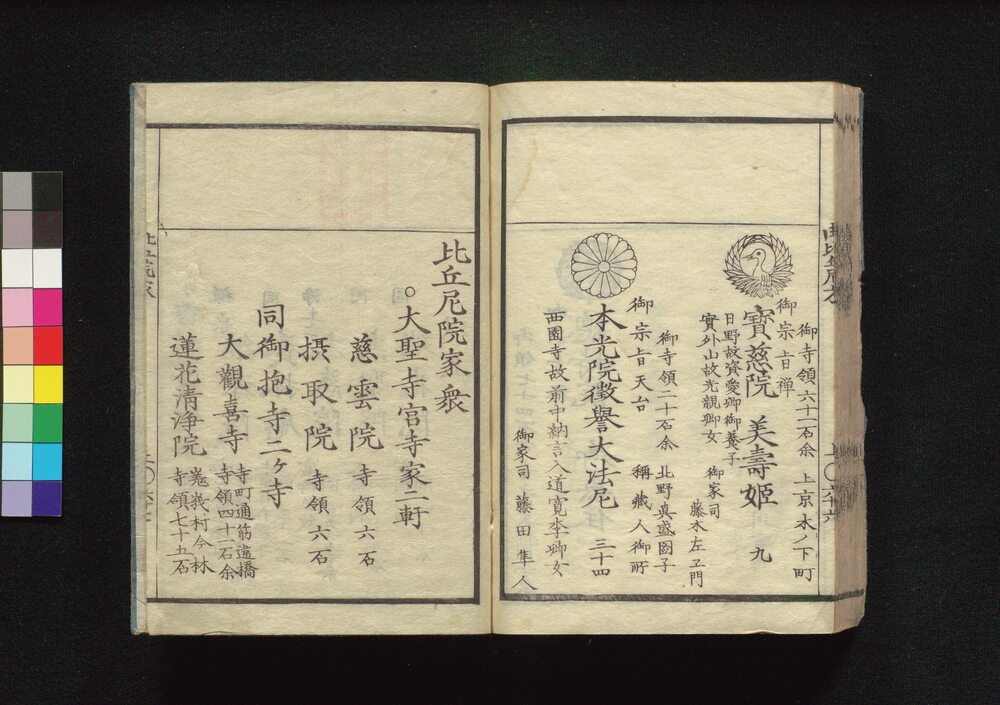 御寺領六十二石余 上京木ノ下町
御宗旨禅
寶慈院 美壽姫 九
日野故資愛卿御養子
實外山故光親卿女 御家司
藤木左ヱ門
御寺領二十石余 北野真盛圖子
御宗旨天台 稱蔵人御所
本光院徴譽大法尼 三十四
西園寺故前中納言入道寛季卿女
御家司 藤田隼人
比丘尼院家衆
○大聖寺宮寺家二軒
慈雲院 寺領六石
摂取院 寺領六石
同御抱寺二ヶ寺
大觀喜寺 寺町通筋違橋
寺領四十一石余
蓮花清浄院 嵯峩村今林
寺領七十五石